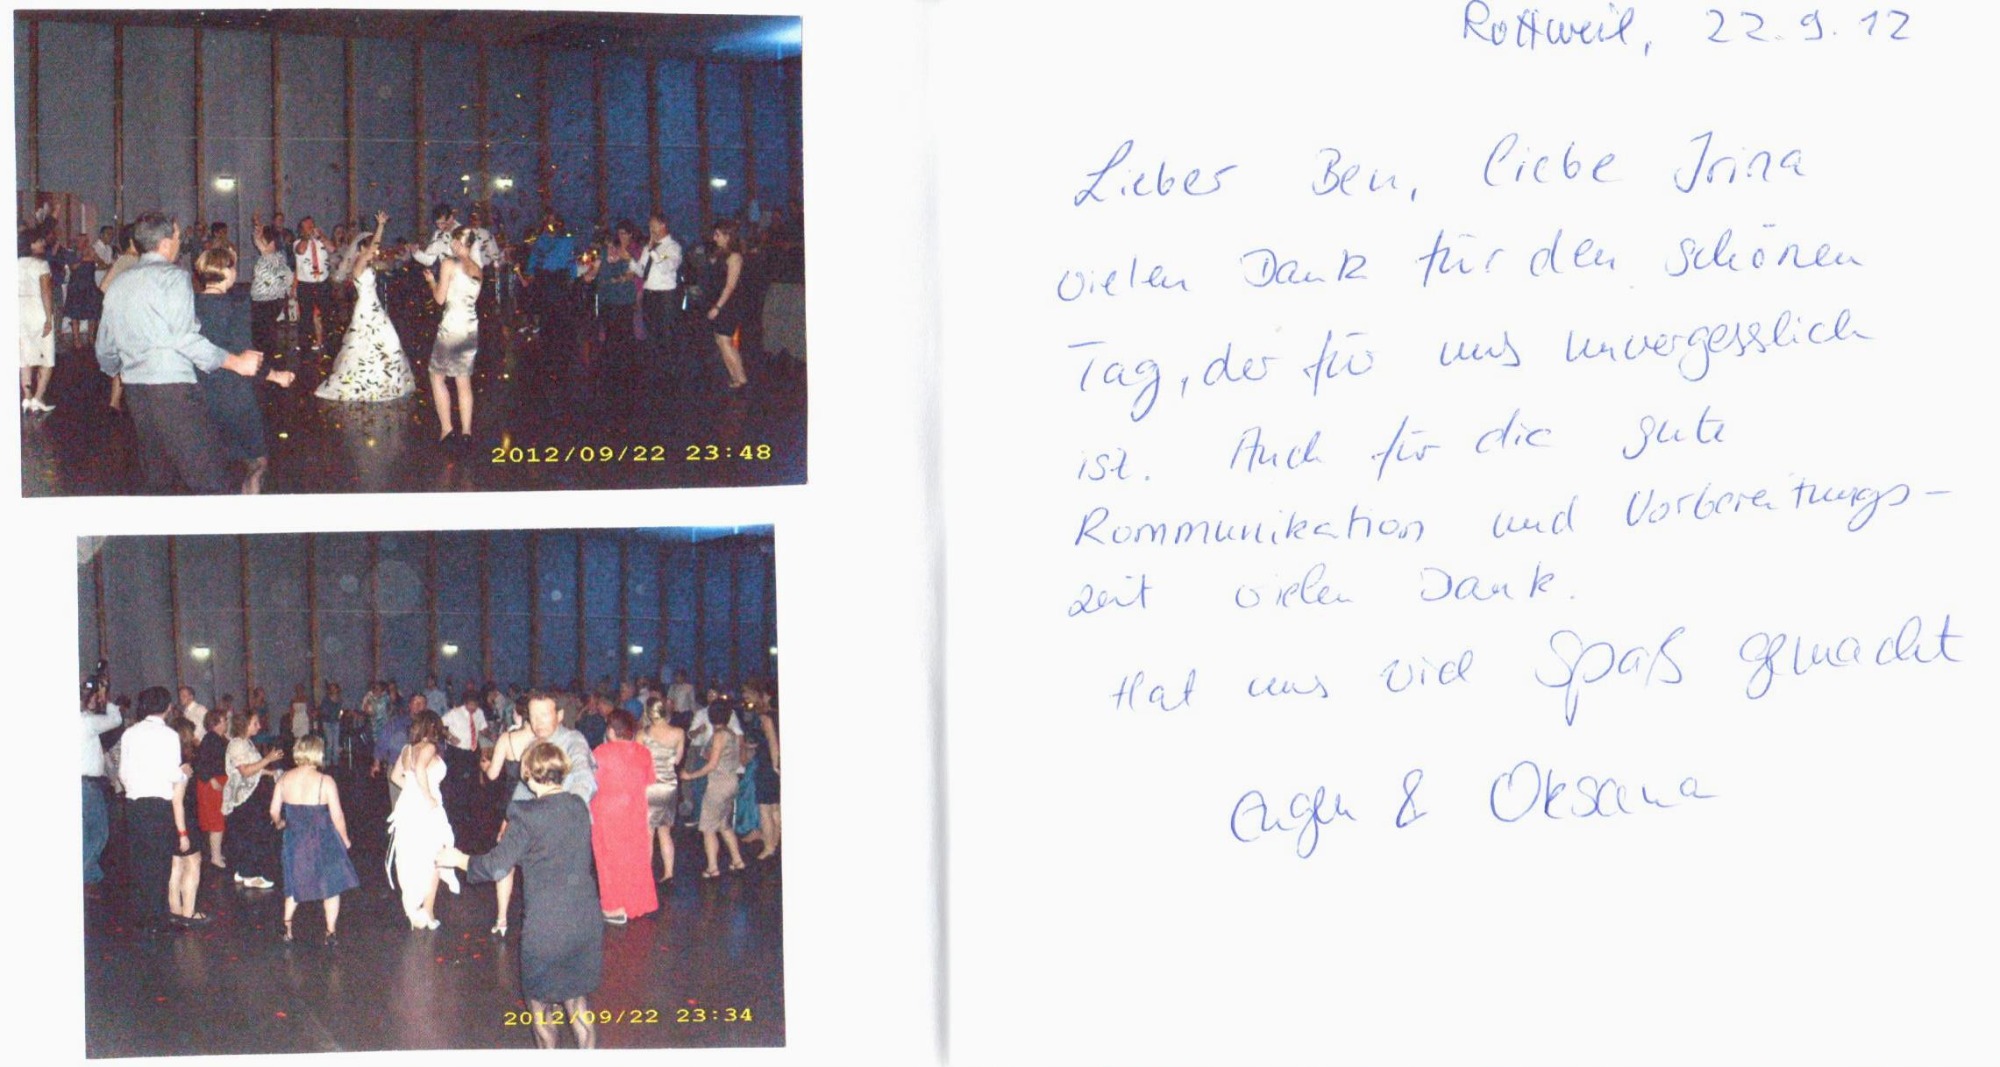 2012/09/22 23:48
2012/09/22 23:34
Rottweil, 22.9.12
Lieber Ben, liebe Irina
vielen Dank für den schönen
Tag, der für uns unvergesslich
ist. Auch für die gute
Kommunikation und Vorbereitungs-
zeit vielen Dank.
Hat uns viel Spaß gemacht
Eugen & Oksana